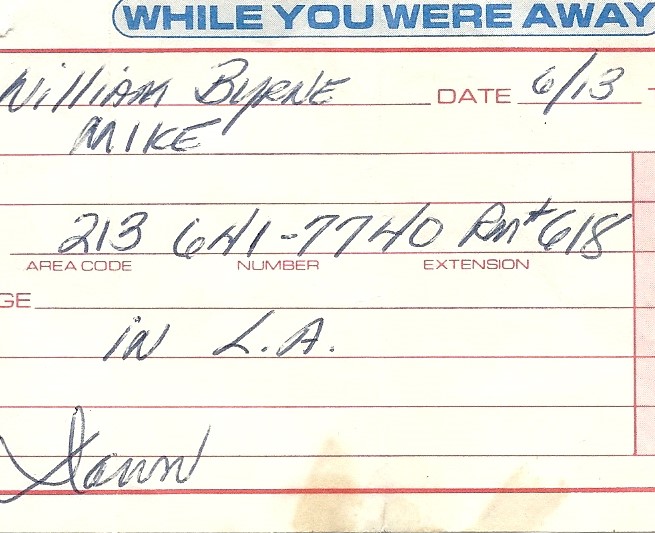 WHILE YOU WERE AWAY
William Byrne DATE 6/13
MIKE
213 641-7740 Rm# 618
AREA CODE NUMBER EXTENSION
GE
in L.A.